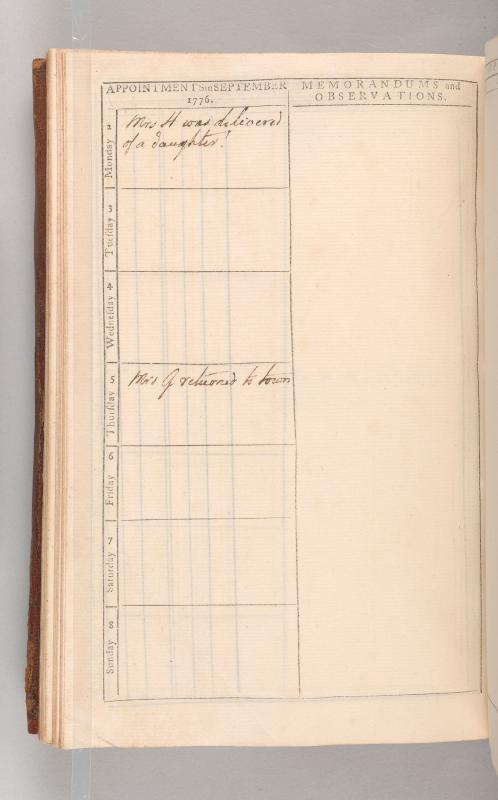 APPOINTMENTS in SEPTEMBER
1776.
MEMORANDUMS and
OBSERVATIONS.
Monday 2
Mrs H was delivered
of a daughter!
Tueſday 3
Wedneſday 4
Thurſday 5
Mrs G returned to town
Friday 6
Saturday 7
Sunday 8